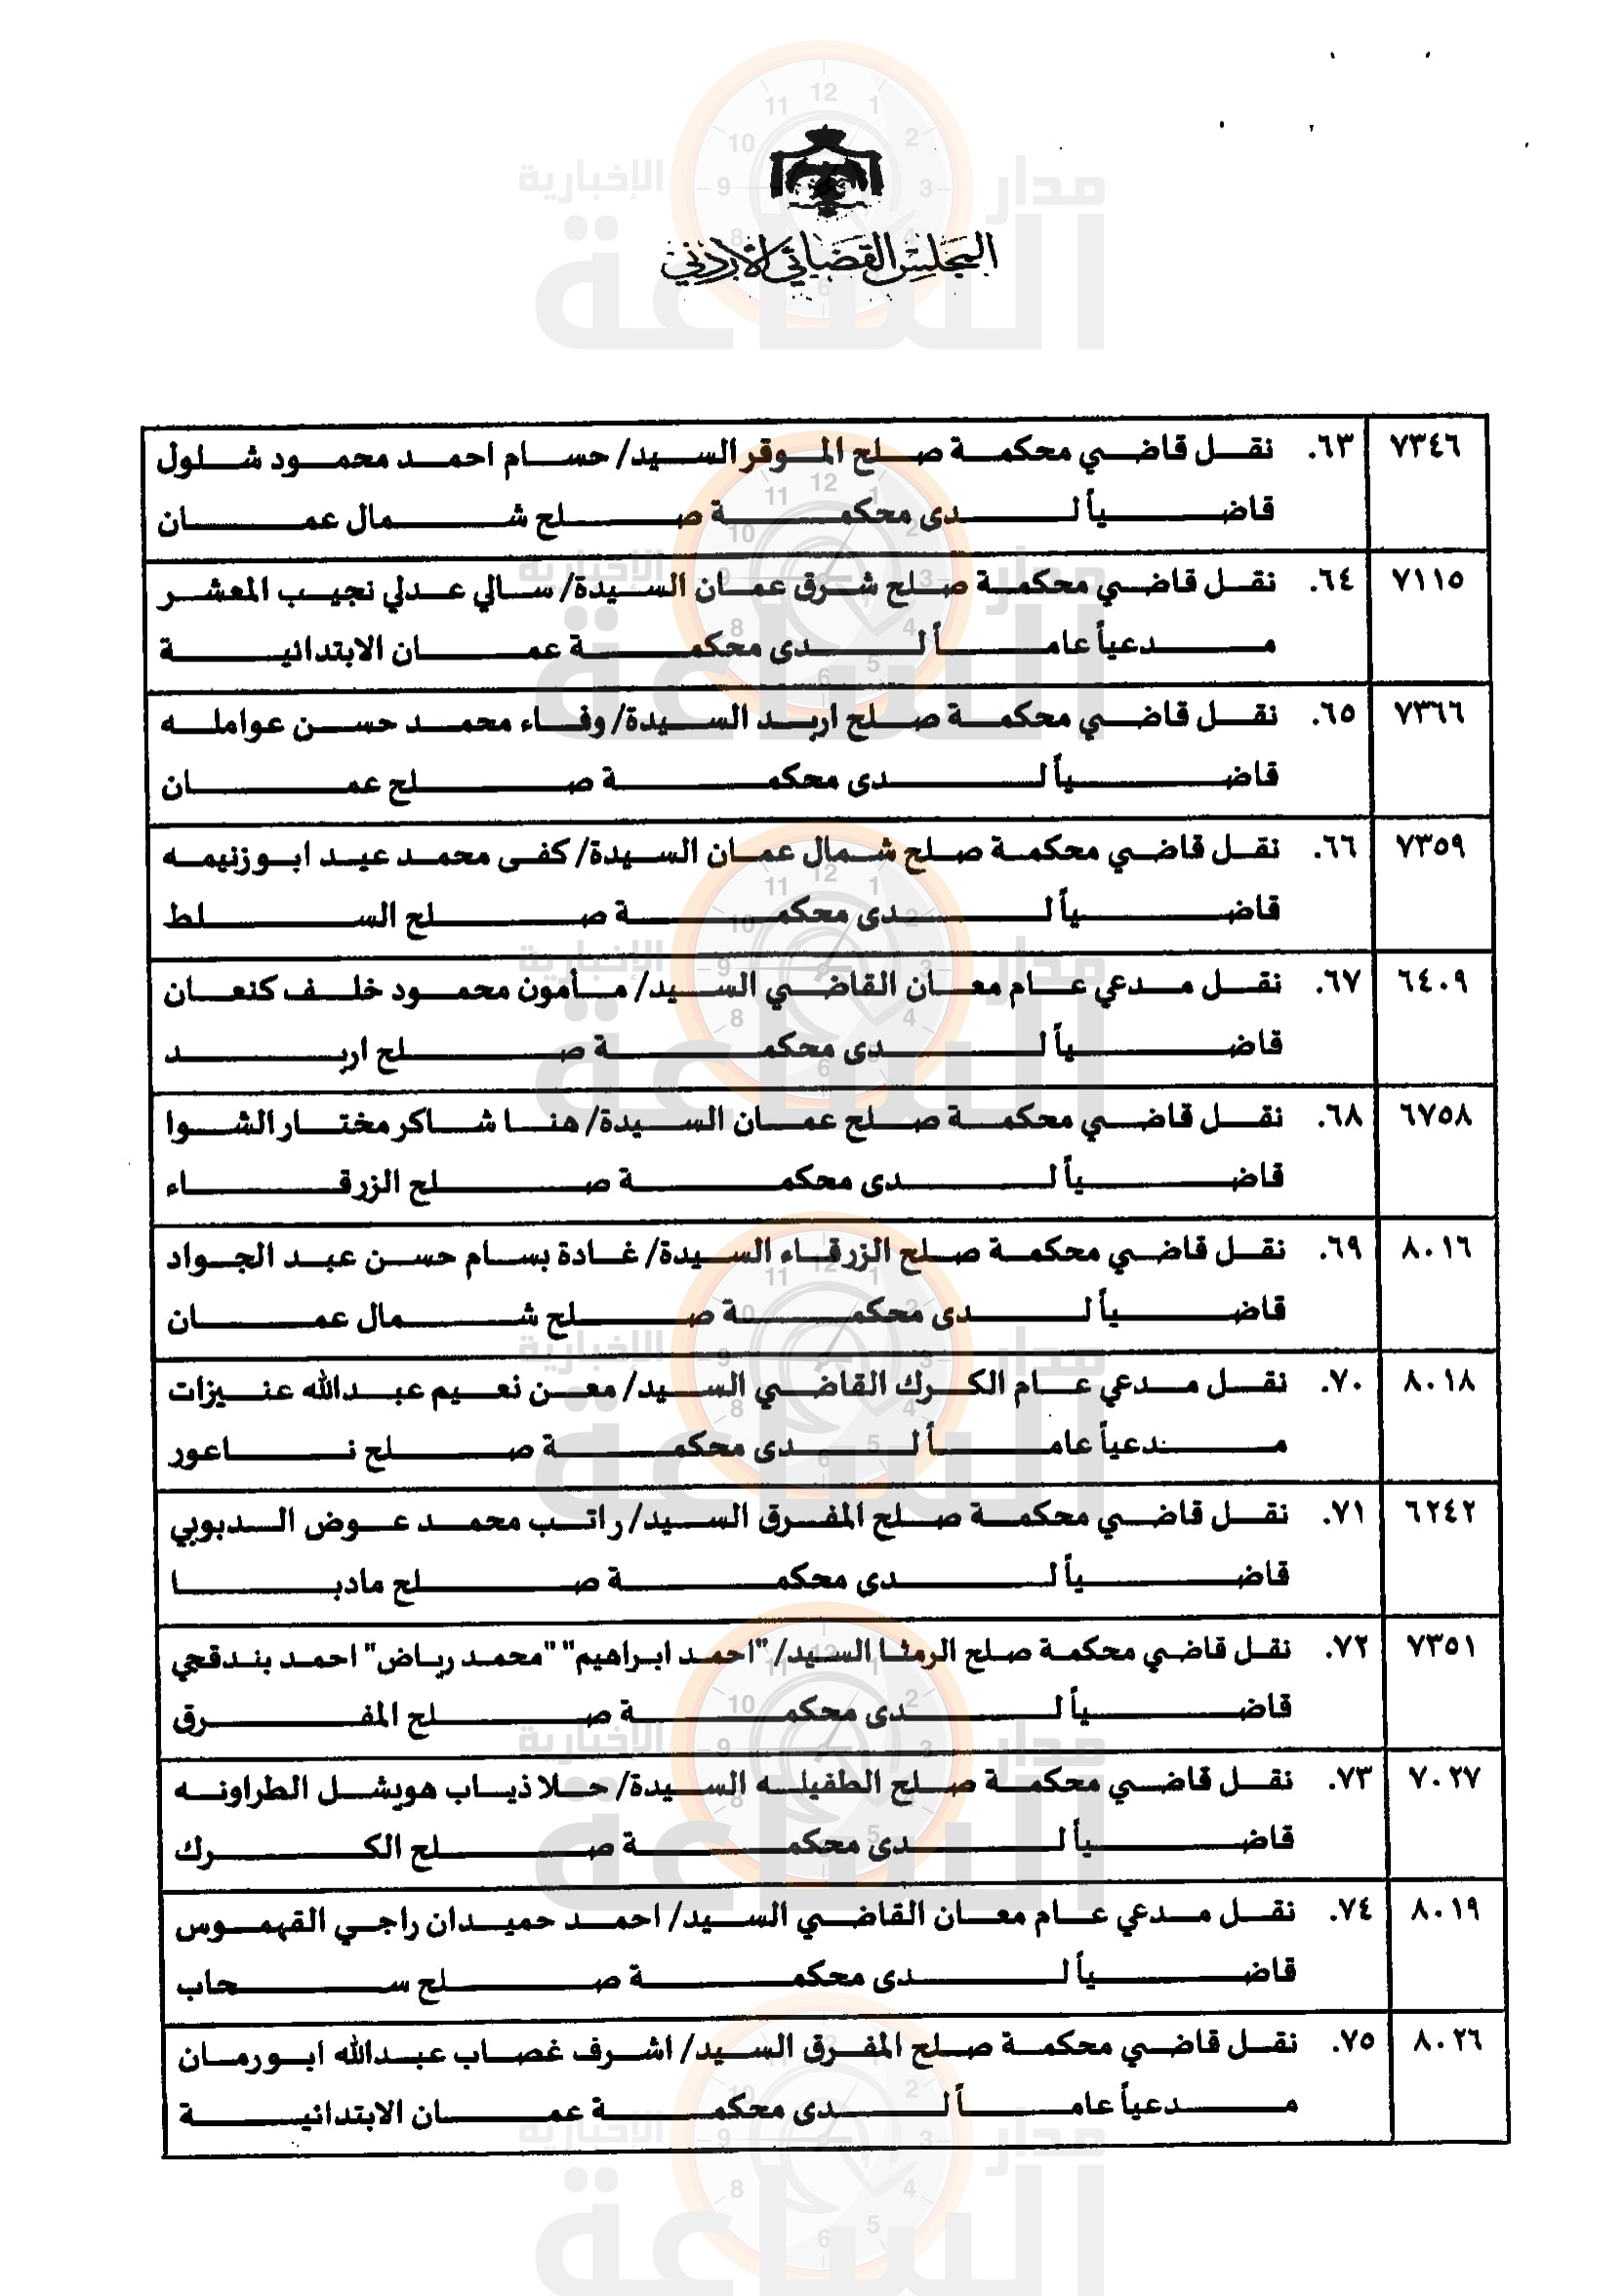 المجلس القضائي الأردني
مدار
الساعة
الإخبارية
٧٣٤٦ ٦٣. نقل قاضي محكمة صلح الموقر السيد/ حسام احمد محمود شلول
قاضياً لدى محكمة صلح شمال عمان
٧١١٥ ٦٤. نقل قاضي محكمة صلح شرق عمان السيدة/ سالي عدلي نجيب المعشر
مدعياً عاماً لدى محكمة عمان الابتدائية
٧٣٦٦ ٦٥. نقل قاضي محكمة صلح اربد السيدة/ وفاء محمد حسن عوامله
قاضياً لدى محكمة صلح عمان
٧٣٥٩ ٦٦. نقل قاضي محكمة صلح شمال عمان السيدة/ كفى محمد عيد ابوزنيمه
قاضياً لدى محكمة صلح السلط
٦٤٠٩ ٦٧. نقل مدعي عام معان القاضي السيد/ مأمون محمود خلف كنعان
قاضياً لدى محكمة صلح اربد
٦٧٥٨ ٦٨. نقل قاضي محكمة صلح عمان السيدة/ هنا شاكر مختار الشوا
قاضياً لدى محكمة صلح الزرقاء
٨٠١٦ ٦٩. نقل قاضي محكمة صلح الزرقاء السيدة/ غادة بسام حسن عبد الجواد
قاضياً لدى محكمة صلح شمال عمان
٨٠١٨ ٧٠. نقل مدعي عام الكرك القاضي السيد/ معن نعيم عبدالله عنيزات
مدعياً عاماً لدى محكمة صلح ناعور
٦٢٤٢ ٧١. نقل قاضي محكمة صلح المفرق السيد/ راتب محمد عوض الدبوبي
قاضياً لدى محكمة صلح مادبا
٧٣٥١ ٧٢. نقل قاضي محكمة صلح الرمثا السيد/ "احمد ابراهيم" "محمد رياض" احمد بندقجي
قاضياً لدى محكمة صلح المفرق
٧٠٢٧ ٧٣. نقل قاضي محكمة صلح الطفيله السيدة/ حلا ذياب هويشل الطراونه
قاضياً لدى محكمة صلح الكرك
٨٠١٩ ٧٤. نقل مدعي عام معان القاضي السيد/ احمد حميدان راجي القهموس
قاضياً لدى محكمة صلح سحاب
٨٠٢٦ ٧٥. نقل قاضي محكمة صلح المفرق السيد/ اشرف غصاب عبدالله ابورمان
مدعياً عاماً لدى محكمة عمان الابتدائية